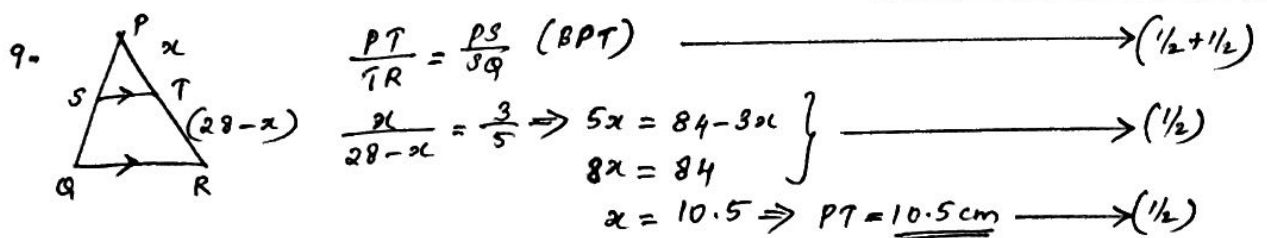 9.
P
x
S
T
(28-x)
Q
R
PT/TR = PS/SQ (BPT) → (1/2+1/2)
x/28-x = 3/5 ⇒ 5x = 84-3x } → (1/2)
8x = 84
x = 10.5 ⇒ PT = 10.5 cm → (1/2)